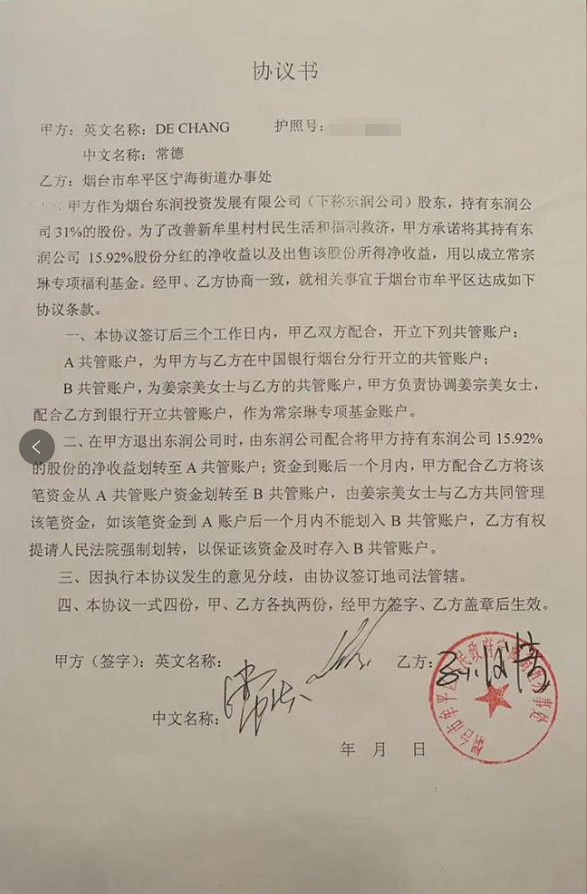 协议书
甲方：英文名称：DE CHANG 护照号：
中文名称：常德
乙方：烟台市牟平区宁海街道办事处
甲方作为烟台东润投资发展有限公司（下称东润公司）股东，持有东润公
司31%的股份。为了改善新牟里村村民生活和福利救济，甲方承诺将其持有东
润公司 15.92%股份分红的净收益以及出售该股份所得净收益，用以成立常宗
琳专项福利基金。经甲、乙方协商一致，就相关事宜于烟台市牟平区达成如下
协议条款。
一、本协议签订后三个工作日内，甲乙双方配合，开立下列共管账户：
A 共管账户，为甲方与乙方在中国银行烟台分行开立的共管账户；
B 共管账户，为姜宗美女士与乙方的共管账户，甲方负责协调姜宗美女士，
配合乙方到银行开立共管账户，作为常宗琳专项基金账户。
二、在甲方退出东润公司时，由东润公司配合将甲方持有东润公司 15.92%
的股份的净收益划转至 A 共管账户；资金到账后一个月内，甲方配合乙方将该
笔资金从 A 共管账户资金划转至 B 共管账户，由姜宗美女士与乙方共同管理
该笔资金，如该笔资金到 A 账户后一个月内不能划入 B 共管账户，乙方有权
提请人民法院强制划转，以保证该资金及时存入 B 共管账户。
三、因执行本协议发生的意见分歧，由协议签订地司法管辖。
四、本协议一式四份，甲、乙方各执两份，经甲方签字、乙方盖章后生效。
甲方（签字）：英文名称： 乙方：
中文名称：常德
年 月 日
烟台市牟平区人民政府宁海街道办事处